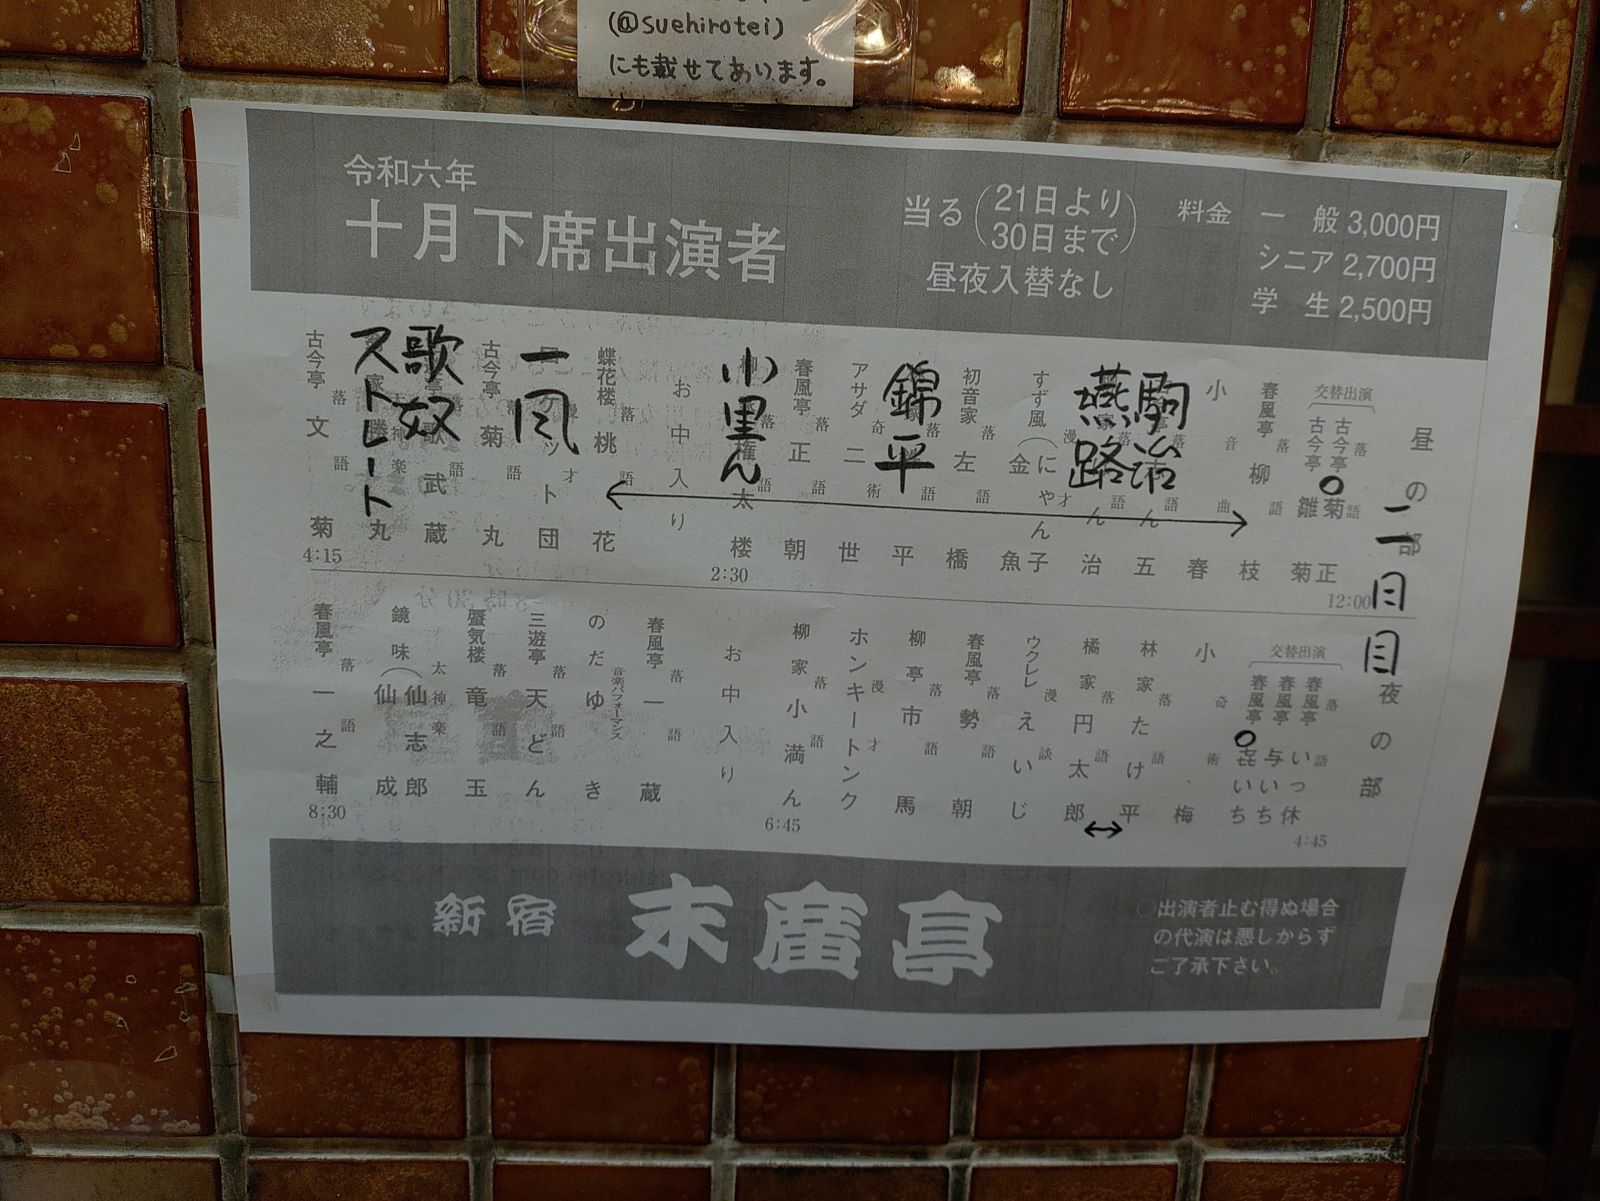 (@suehirotei)
にも載せてあります。
令和六年
十月下席出演者
当る(21日より
30日まで)
昼夜入替なし
料金 一般 3,000円
シニア 2,700円
学生 2,500円
昼の部
二日目
交替出演
古今亭 落語 菊正
古今亭 雛菊
春風亭 落語 柳枝
小春 音曲
駒治
燕路
すず風 漫才 (にゃん子
金魚
初音家 落語 左橋
錦平
アサダ 奇術 二世
春風亭 落語 正朝
小里ん
お中入り
蝶花楼 落語 桃花
一風
古今亭 落語 菊丸
歌奴
ストレート
古今亭 落語 文菊
12:00
2:30
4:15
夜の部
交替出演
春風亭 落語 いっ休
春風亭 与いち
春風亭 㐂いち
小梅 奇術
林家 落語 たけ平
橘家 落語 円太郎
ウクレレ 漫談 えいじ
春風亭 落語 勢朝
柳亭 落語 市馬
ホンキートンク 漫才
柳家 落語 小満ん
お中入り
春風亭 落語 一蔵
のだゆき 音楽パフォーマンス
三遊亭 落語 天どん
蜃気楼 落語 竜玉
鏡味 太神楽 (仙志郎
仙成
春風亭 落語 一之輔
4:45
6:45
8:30
新宿 末廣亭
○出演者止む得ぬ場合
の代演は悪しからず
ご了承下さい。